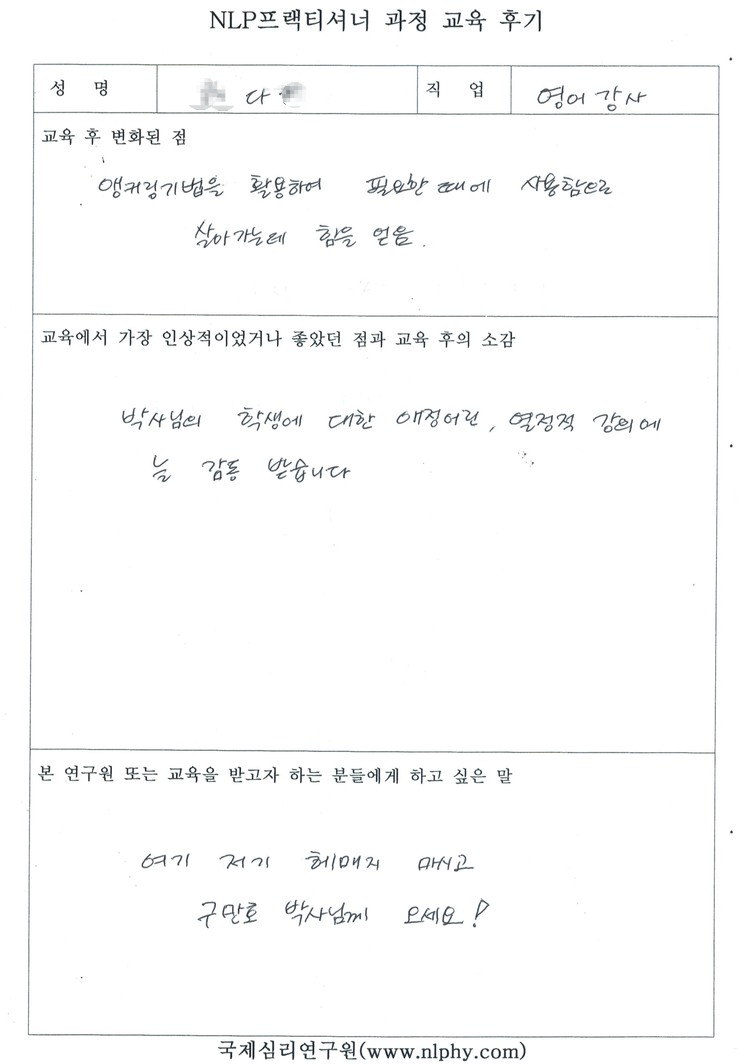 NLP프랙티셔너 과정 교육 후기
성 명 다 직 업 영어 강사
교육 후 변화된 점
앵커링기법을 활용하여 필요한 때에 사용함으로
살아가는데 힘을 얻음.
교육에서 가장 인상적이었거나 좋았던 점과 교육 후의 소감
박사님의 학생에 대한 애정어린, 열정적 강의에
늘 감동 받습니다
본 연구원 또는 교육을 받고자 하는 분들에게 하고 싶은 말
여기 저기 헤매지 마시고
구만호 박사님께 오세요!
국제심리연구원(www.nlphy.com)